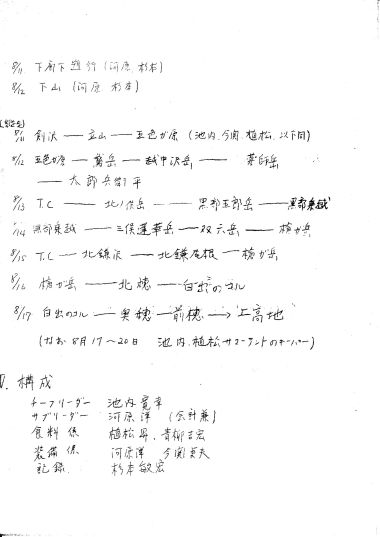 8/11 下廊下遡行 (河原、杉本)
8/12 下山 (河原 杉本)
8/11 剣沢 ― 立山 ― 五色ヶ原 (池内、今関、植松、以下同)
8/12 五色ヶ原 ― 鳶岳 ― 越中沢岳 ― 薬師岳
― 太郎兵衛平
8/13 T.C ― 北ノ俣岳 ― 黒部五郎岳 ― 黒部乗越
8/14 黒部乗越 ― 三俣蓮華岳 ― 双六岳 ― 槍ヶ岳
8/15 T.C ― 北鎌沢 ― 北鎌尾根 ― 槍ヶ岳
8/16 槍ヶ岳 ― 北穂 ― 白出のコル
8/17 白出のコル ― 奥穂 ― 前穂 → 上高地
(なお 8月17~20日 池内、植松 サマーテントのキーパー)
構成
チーフリーダー 池内寛幸
サブリーダー 河原洋 (会計兼)
食料係 植松昇、青柳吉宏
装備係 河原洋 今関貞夫
記録 杉本敏宏